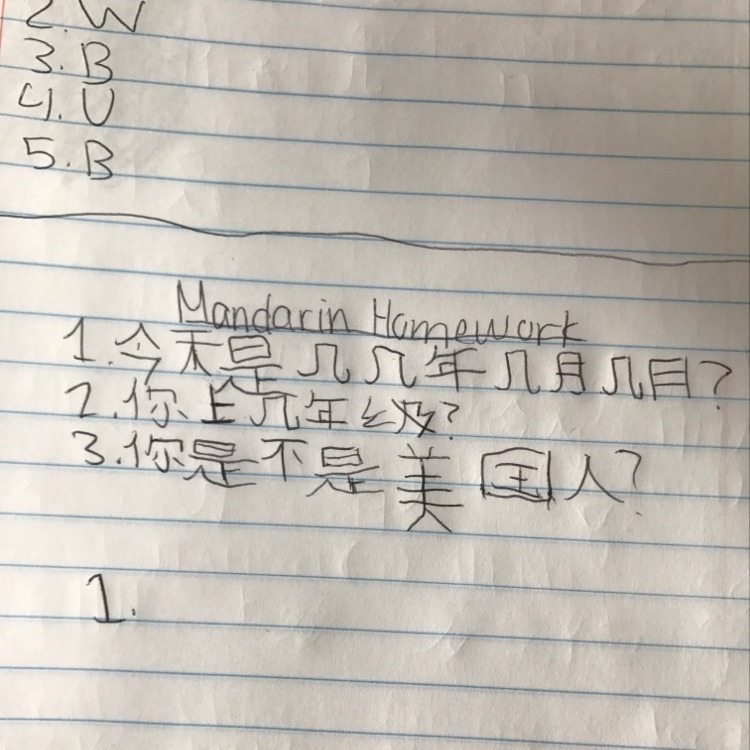 2. W
3. B
4. U
5. B
Mandarin Homework
1. 今天是几几年几月几日?
2. 你上几年级?
3. 你是不是美国人?
1.